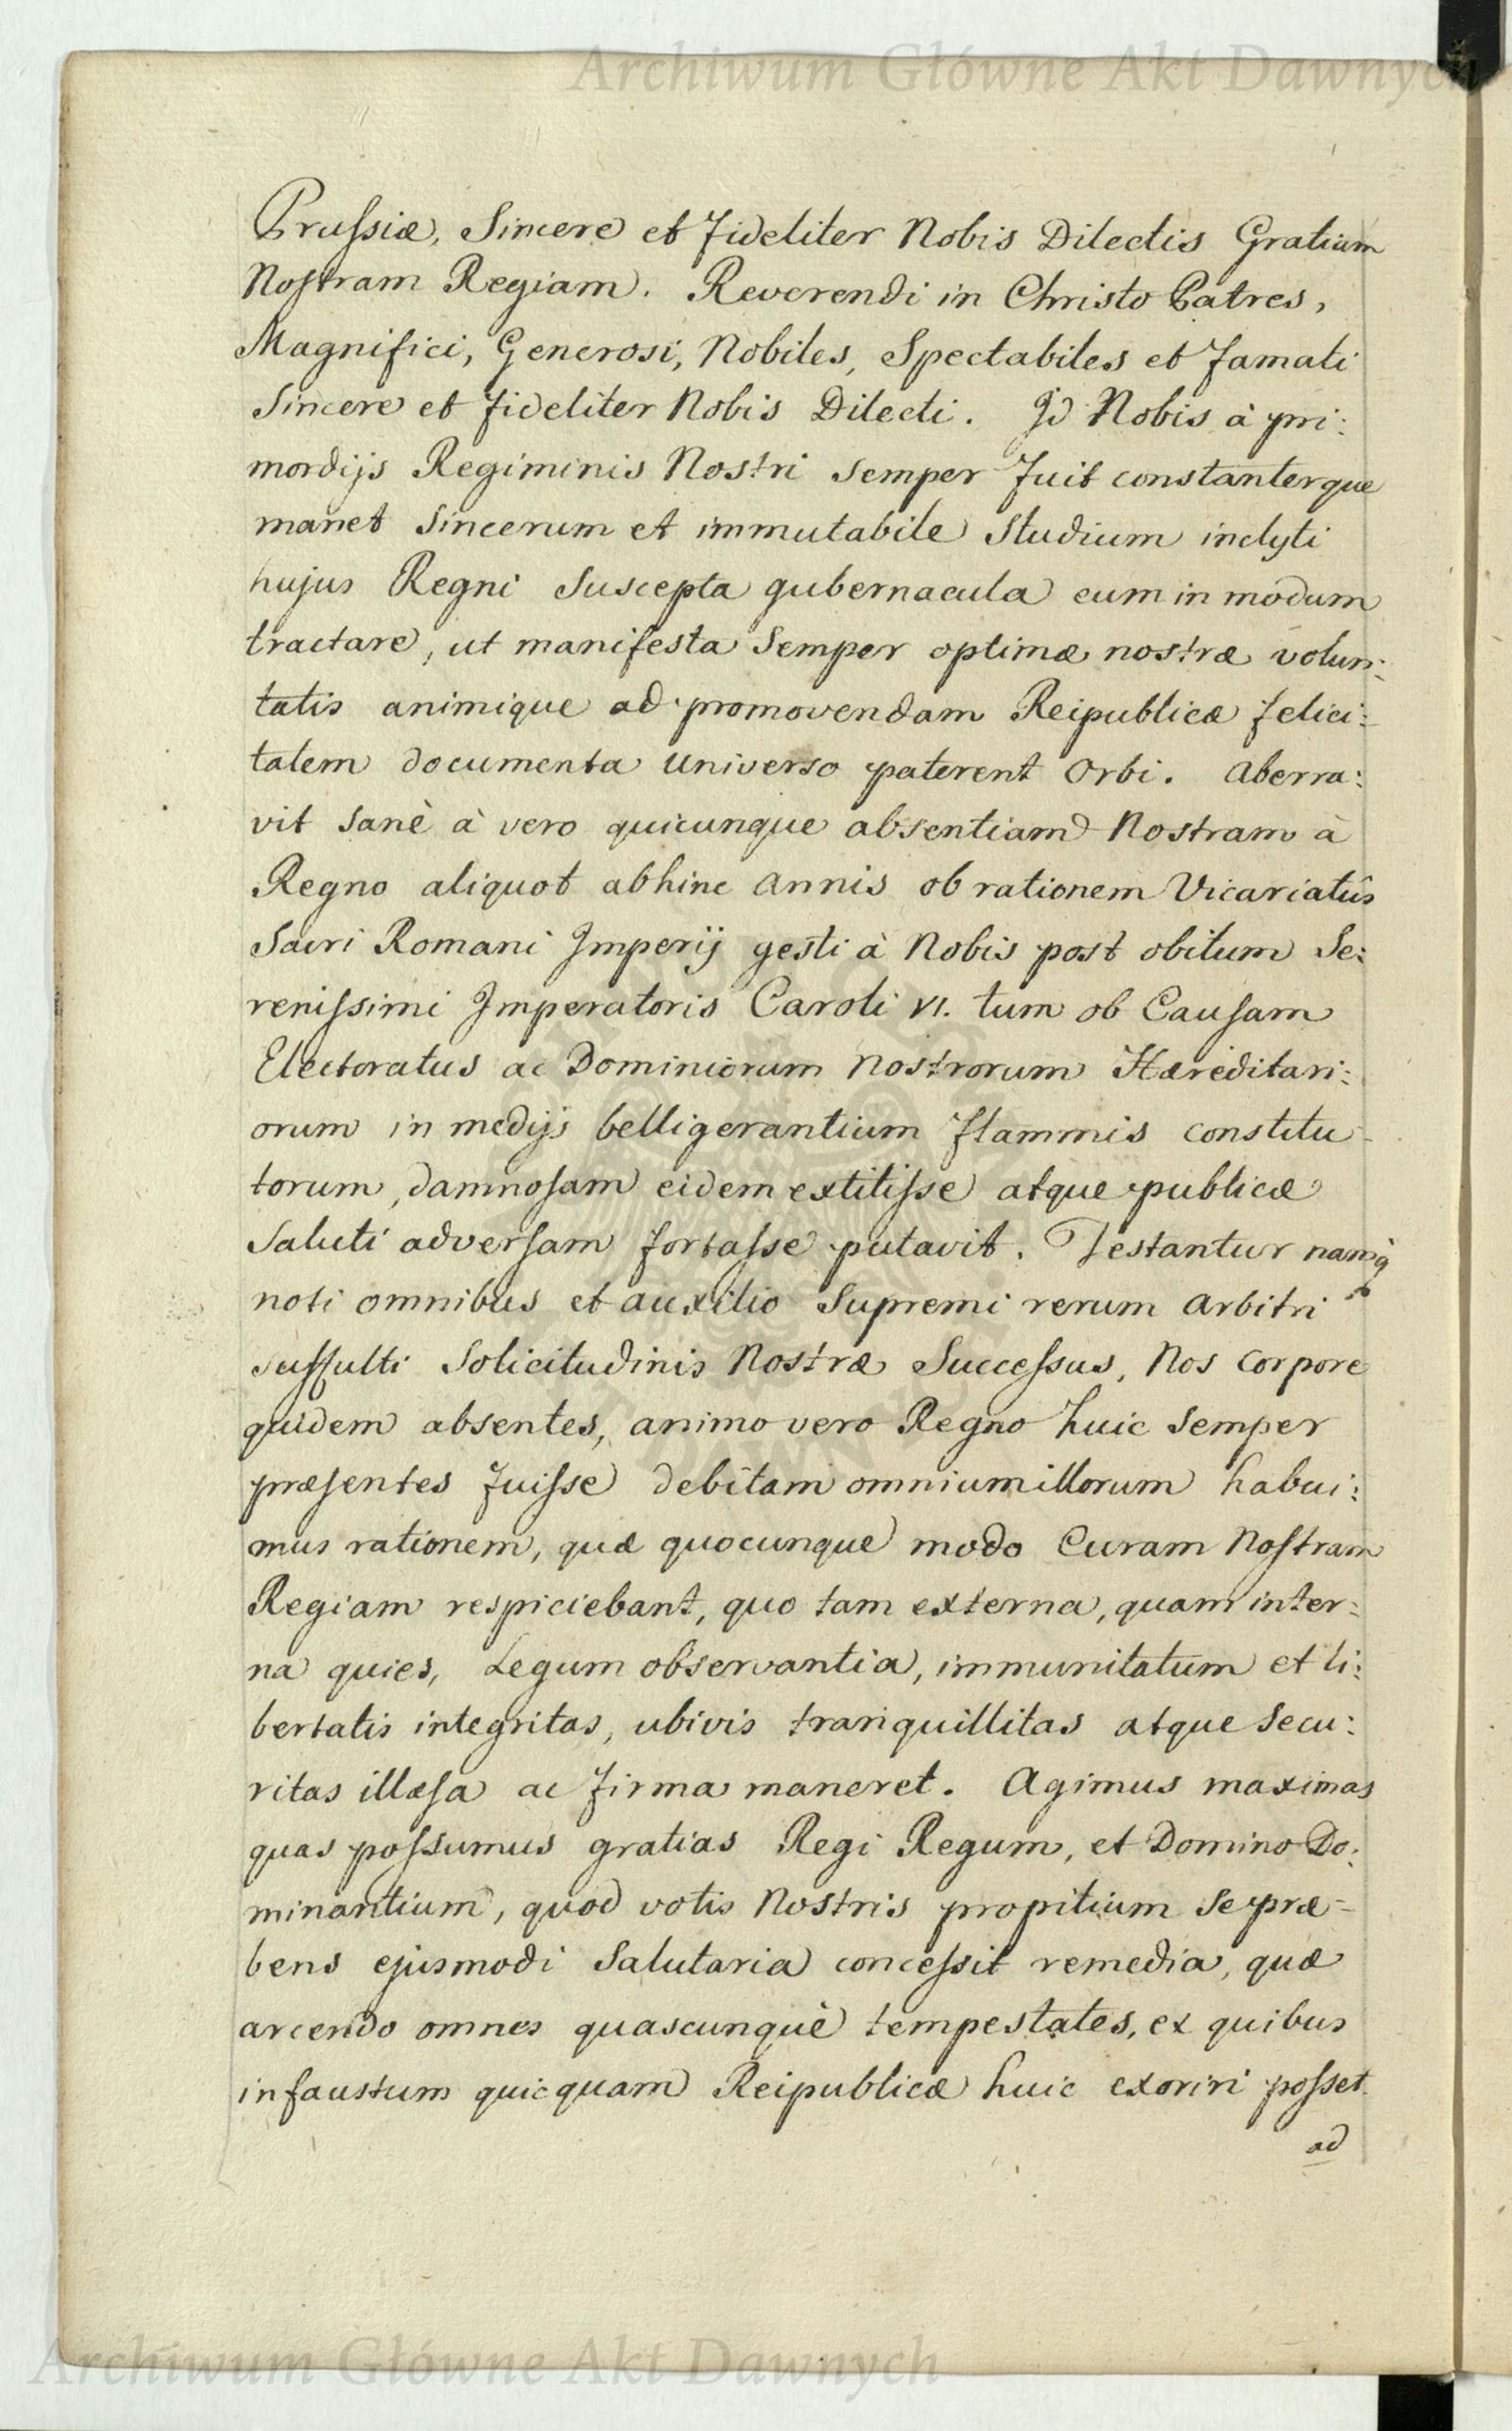 Archiwum Główne Akt Dawnych
Prussiæ, Sincere et Fideliter Nobis Dilectis Gratiam
Nostram Regiam. Reverendi in Christo Patres,
Magnifici, Generosi, Nobiles, Spectabiles et Famati
Sincere et Fideliter Nobis Dilecti. Id Nobis à pri:
mordijs Regiminis Nostri semper Fuit constanterque
manet sincerum et immutabile Studium inclyti
hujus Regni Suscepta gubernacula eum in modum
tractare, ut manifesta Semper optimæ nostræ volun:
tatis animique ad promovendam Reipublicæ felici:
tatem documenta Universo paterent Orbi. Aberra:
vit Sanè à vero quicunque absentiam Nostram à
Regno aliquot abhinc Annis ob rationem Vicariatûs
Sacri Romani Imperij gesti à Nobis post obitum Se:
renissimi Imperatoris Caroli VI. tum ob Causam
Electoratus ac Dominiorum Nostrorum Hæreditari:
orum in medijs belligerantium Flammis constitu-
torum, damnosam eidem extitisse atque publicæ
Saluti adversam fortasse putavit. Testantur namq̀
noti omnibus et auxilio Supremi rerum Arbitri
suffulti Solicitudinis Nostræ Successus, Nos Corpore
quidem absentes, animo vero Regno huic Semper
præsentes Fuisse debitam omnium illorum habui:
mus rationem, quæ quocunque modo Curam Nostram
Regiam respiciebant, quo tam externa, quam inter:
na quies, Legum observantia, immunitatum et li:
bertatis integritas, ubivis tranquillitas atque Secu:
ritas illæsa ac Firma maneret. Agimus maximas
quas possumus gratias Regi Regum, et Domino Do:
minantium, quod votis Nostris propitium Se præ-
bens ejusmodi Salutaria concessit remedia, quæ
arcendo omnes quascunquè tempestates, ex quibus
infaustum quicquam Reipublicæ huic exoriri posset
ad
Archiwum Główne Akt Dawnych